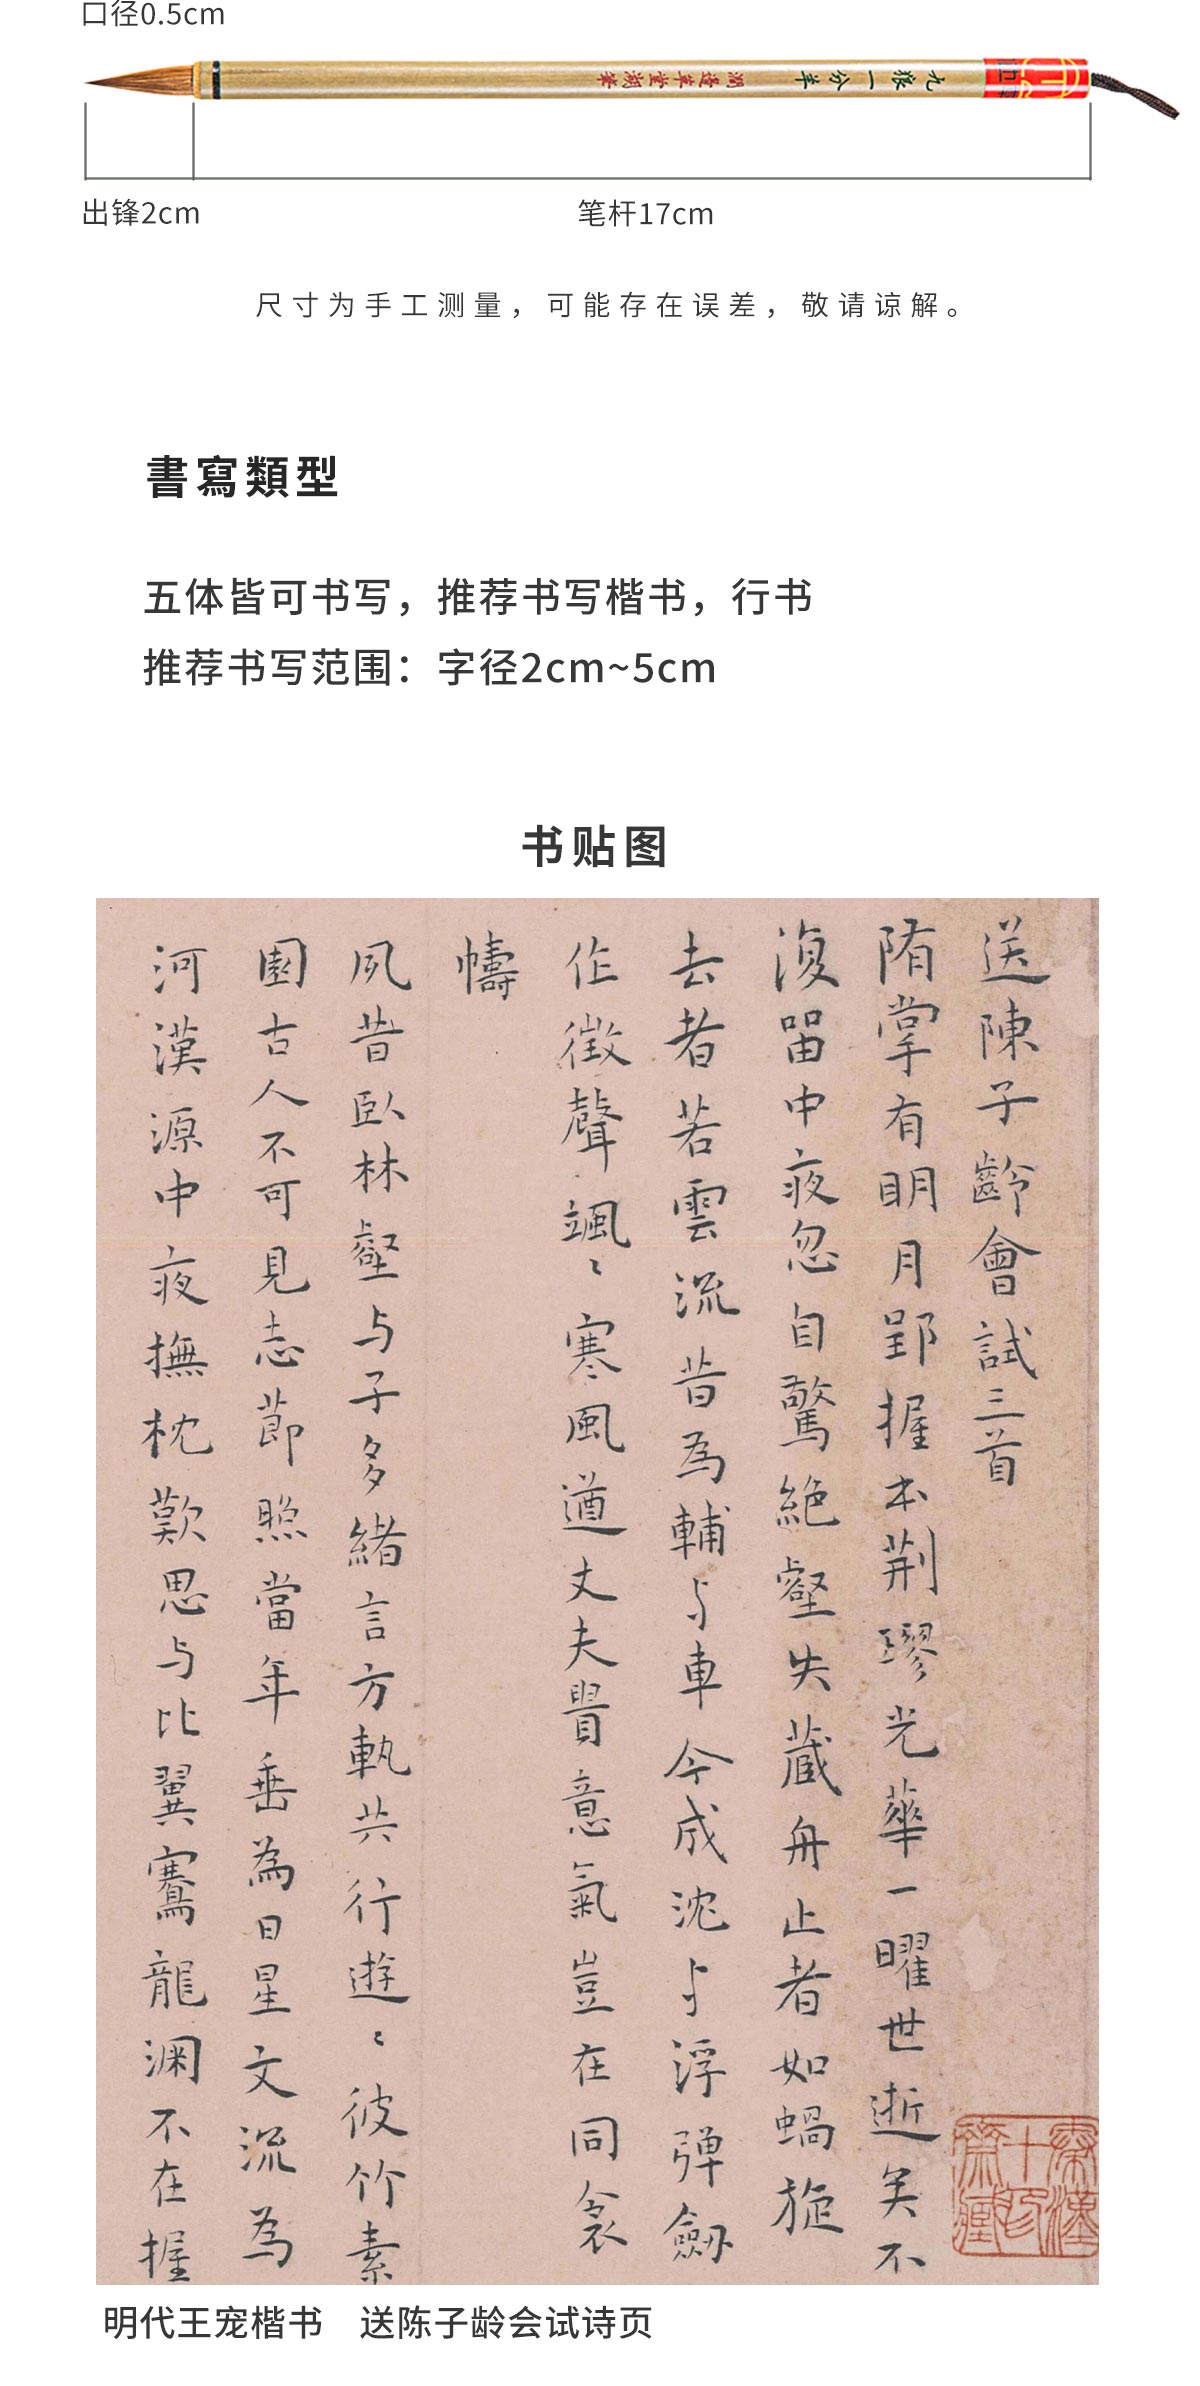 口径0.5cm
九狼一分羊
出锋2cm
笔杆17cm
尺寸为手工测量，可能存在误差，敬请谅解。
書寫類型
五体皆可书写，推荐书写楷书，行书
推荐书写范围：字径2cm~5cm
书贴图
送陳子齡會試三首
隋掌有明月郢握本荆璆光華一曜世逝矣不
復留中夜忽自驚絶壑失藏舟止者如蝸旋
去者若雲流昔為輔与車今成沈与浮彈劒
作徵聲颯〻寒風遒丈夫貴意氣豈在同衾
幬
夙昔臥林壑与子多緒言方執共行遊〻彼竹素
園古人不可見志節照當年垂為日星文流為
河漢源中夜撫枕歎思与比翼騫龍渊不在握
明代王宠楷书 送陈子龄会试诗页